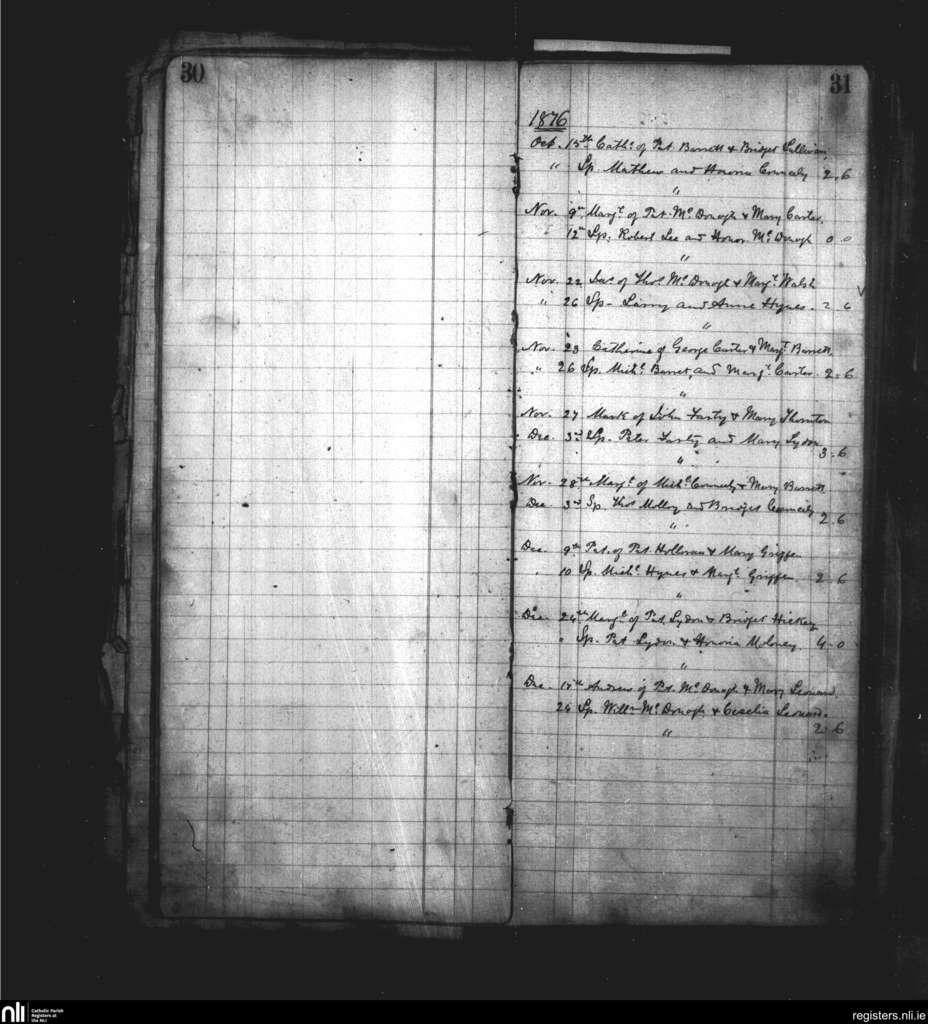 30
31
1876
Oct. 15th Cathe. of Pat Barrett & Bridget Sullivan
" Sp. Mathew and Honoria Conneely 2.6
"
Nov. 9th Margt. of Pat. Mc Donogh & Mary Carter.
" 12th Sp. Robert Lee and Honor Mc Donogh 0.0
"
Nov. 22 Jas. of Thos. Mc Donogh & Margt. Walsh
" 26 Sp. Larry and Anne Hynes. 2 6
"
Nov. 23 Catherine of George Carter & Margt. Barrett
" 26 Sp. Michl. Barret, and Margt. Carter. 2.6
"
Nov. 27 Mark of John Farty & Mary Thornton
Dec. 3rd Sp. Peter Farty and Mary Lydon
3.6
"
Nov. 28th Margt. of Michl. Conneely & Mary Barrett
Dec 3rd Sp. Thos Molloy and Bridget Conneely
2.6
"
Dec. 9th Pat. of Pat Holloran & Mary Griffen
" 10 Sp. Michl. Hynes & Margt. Griffen 2.6
"
Dec. 24th Margt. of Pat Lydon & Bridget Hickey
" Sp. Pat Lydon & Honoria Moloney. 4.0
"
Dec. Andrew of Pat. Mc Donogh & Mary Leonard.
24 Sp. Willm. Mc Donogh & Ceselia Leonard.
2.6
"
nli
Catholic Parish
Registers at
the NLI
registers.nli.ie